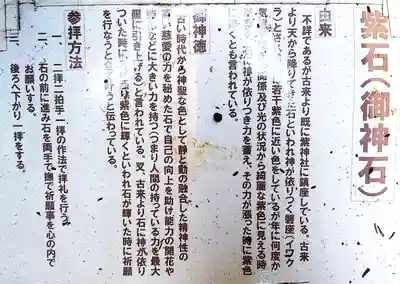 紫石(御神石)
由来
不詳であるが古来より既に紫神社に鎮座している。古来
より天から降りてきた石といわれ神が依りつく磐座(イワク
ラ)と
若干紫色に近い色をしているが年に何度か
関係及び光の状況から綺麗な紫色に見える時
が依りつき力を蓄え、その力が漲った時に紫色
くとも言われている。
御神徳
古い時代から神聖な色として静と動の融合した精神性の
慈愛の力を秘めた石で自己の向上を助け能力の開花や
などに大きい力を持つつまり人間の持っている力を最大
限に引き上げる)と言われている。又、古来より石に神が依り
ついた時に
紫色に輝くといわれ石が輝いた時に祈願
を行なうと
う と伝わっている。
参拝方法
一、二拝二拍手一拝の作法で拝礼を行う
二、石の前に進み石を両手で撫で祈願事を心の内で
お願いする。
三、後ろへ下がり一拝をする。